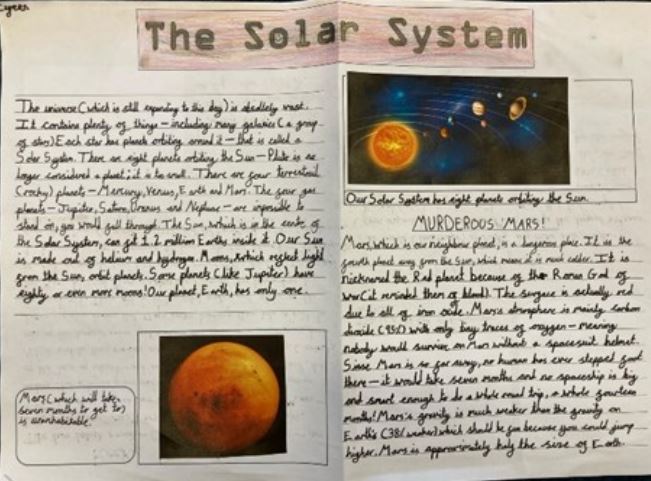 The Solar System
The universe (which is still expanding to this day) is absolutely vast.
It contains plenty of things – including many galaxies (a group
of stars) Each star has planets orbiting around it – that is called a
Solar System. There are eight planets orbiting the Sun – Pluto is no
longer considered a planet; it is to small. There are four terrestrial
(rocky) planets – Mercury, Venus, Earth and Mars. The four gas
planets – Jupiter, Saturn, Uranus and Neptune – are impossible to
stand on, you would fall through. The Sun, which is in the centre of
the Solar System, can fit 1.2 million Earths inside it. Our Sun
is made out of helium and hydrogen. Moons, which reflect light
from the Sun, orbit planets. Some planets (like Jupiter) have
eighty or even more moons! Our planet, Earth, has only one.
Mars (which will take
seven months to get to)
is uninhabitable.
Our Solar System has eight planets orbiting the Sun.
MURDEROUS MARS!
Mars, which is our neighbour planet, is a dangerous place. It is the
fourth planet away from the Sun, which means it is much colder. It is
nicknamed the Red planet because of the Roman God of
war (it reminded them of blood). The surface is actually red
due to all of iron oxide. Mars's atmosphere is mainly carbon
dioxide (95%) with only tiny traces of oxygen – meaning
nobody would survive on Mars without a spacesuit helmet.
Since Mars is so far away, no human has ever stepped foot
there – it would take seven months and no spaceship is big
and smart enough to do a whole round trip, a whole fourteen
months! Mars's gravity is much weaker than the gravity on
Earth's (38% weaker) which should be fun because you could jump
higher. Mars is approximately half the size of Earth.